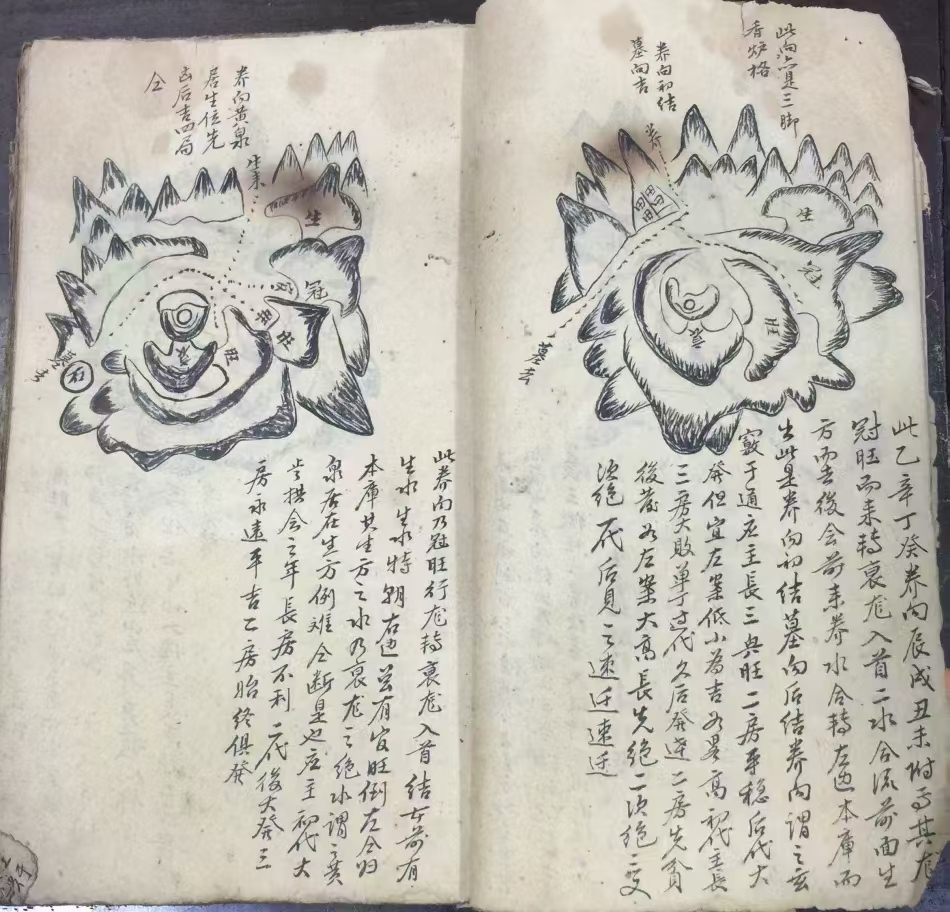 此向亦是三脚
香炉格
养向初结
墓向吉
养
生
冠
旺
衰
墓去
此乙辛丁癸养向辰戌丑未附焉其龙
冠旺而来转衰龙入首二水合流前面生
方而去后会前来养水合转左边本库而
出此是养向初结墓向后结养向谓之玄
窍于通应主长三兴旺二房平稳后代大
发但宜左案低小为吉若是高初代主长
三房大败单丁过代久后发迹二房先贫
后发若左案大高长先绝二次绝三更
次绝一代后见之速迁速迁
养向黄泉
居生位先
凶后吉四局
仝
生来
生
官
冠
旺
旺
衰
墓去
石
此养向乃冠旺行龙转衰龙入首结女前有
生水生水特朝右边若有官旺倒左合归
本库其生方之水乃衰龙之绝水谓之黄
泉居在生方例难全断是也应主初代大
步拱会之年长房不利二代后大发三
房永远平吉二房贻终俱发